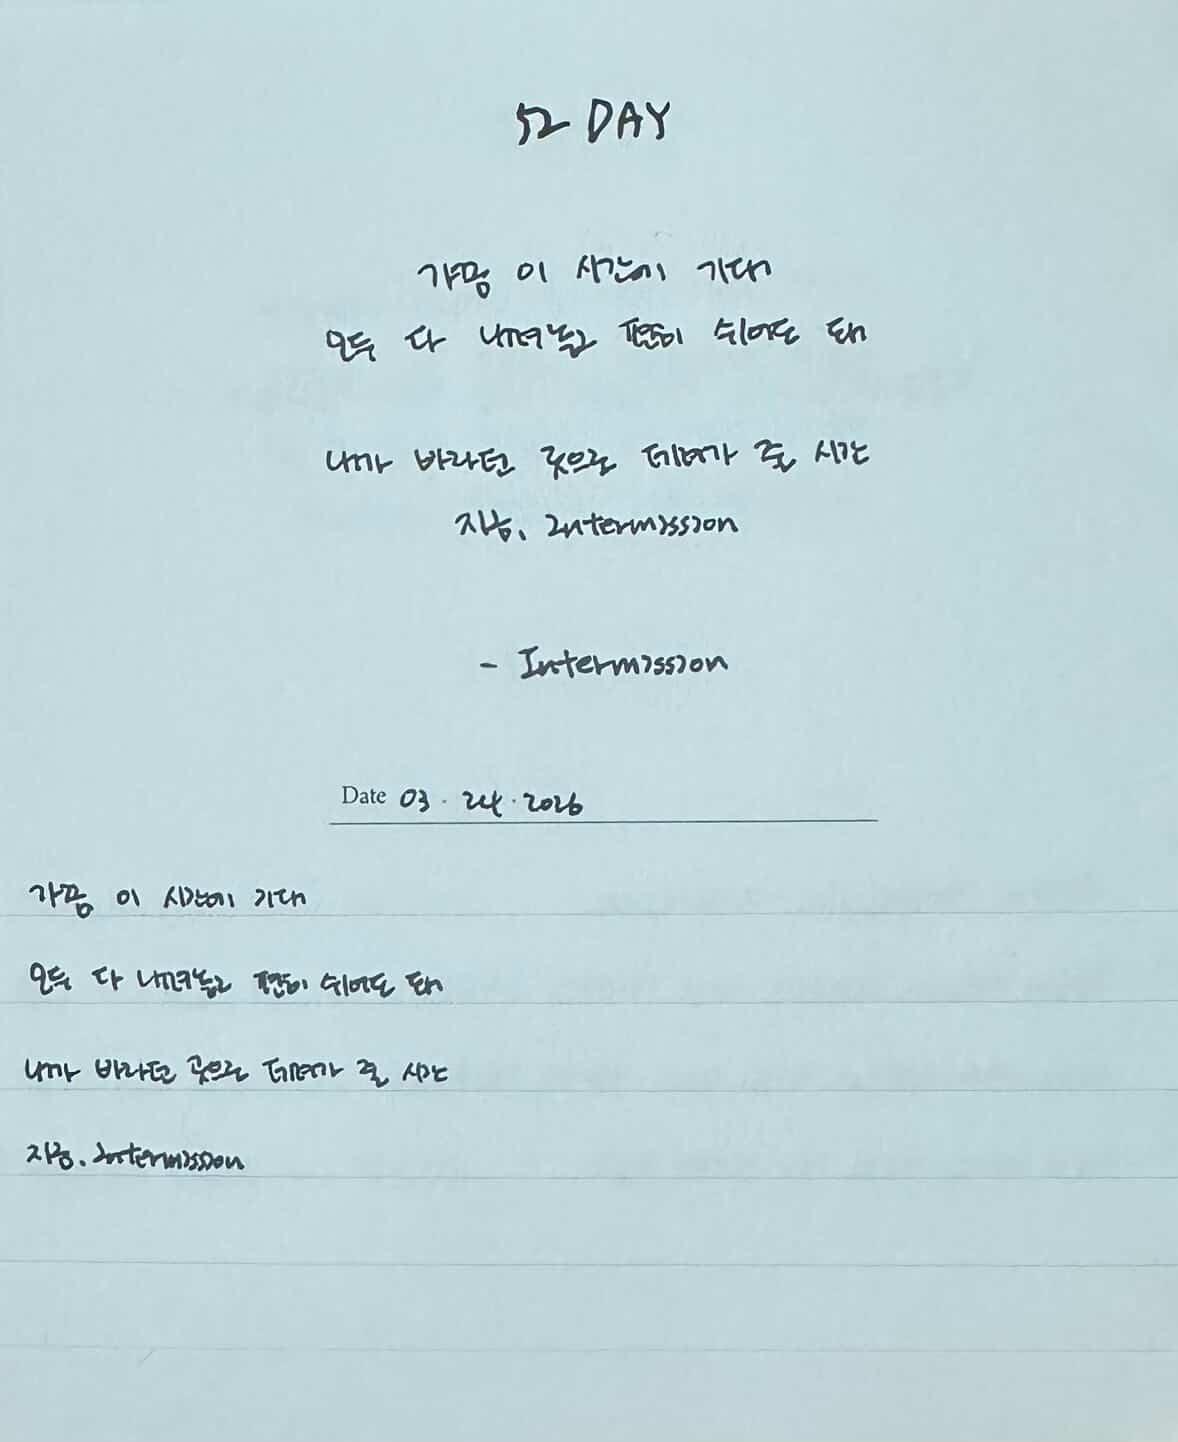 52 DAY
가끔 이 시간에 기대
모두 다 내려놓고 편히 쉬어도 돼
네가 바라던 곳으로 데려가 줄 시간
지금, Intermission
- Intermission
Date 03 · 24 · 2026
가끔 이 시간에 기대
모두 다 내려놓고 편히 쉬어도 돼
네가 바라던 곳으로 데려가 줄 시간
지금, Intermission